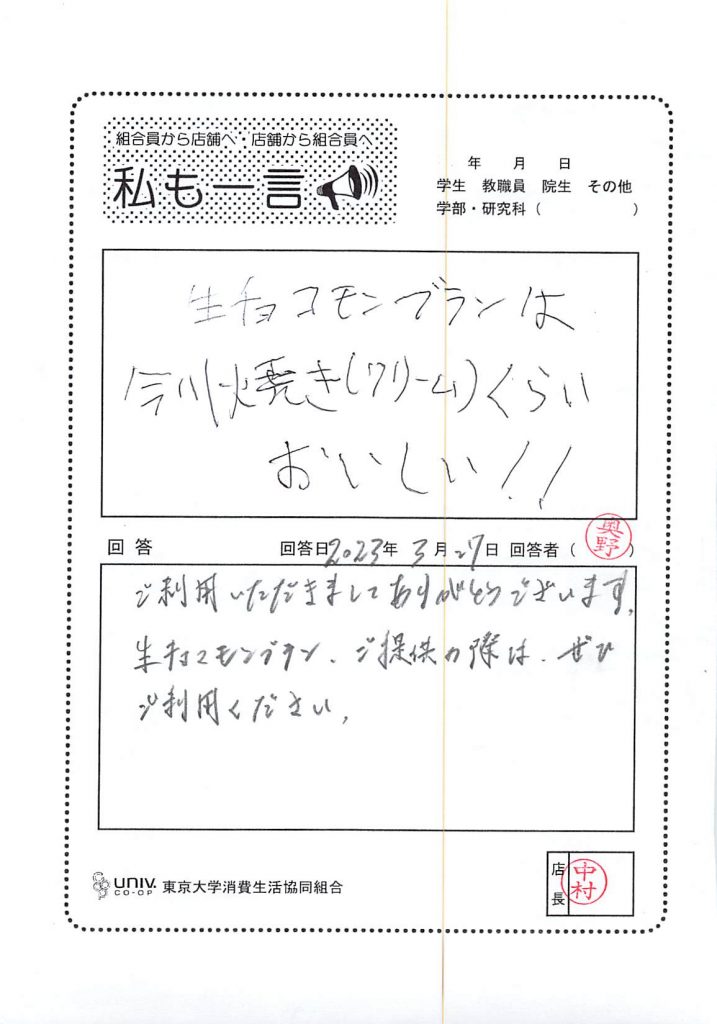 組合員から店舗へ・店舗から組合員へ
私も一言
年 月 日
学生 教職員 院生 その他
学部・研究科（ ）
生チョコモンブランは
今川焼き(クリーム)くらい
おいしい!!
回答 回答日2023年3月27日 回答者（奥野）
ご利用いただきましてありがとうございます。
生チョコモンブラン、ご提供の際は、ぜひ
ご利用ください。
UNIV. CO-OP 東京大学消費生活協同組合
店長 中村